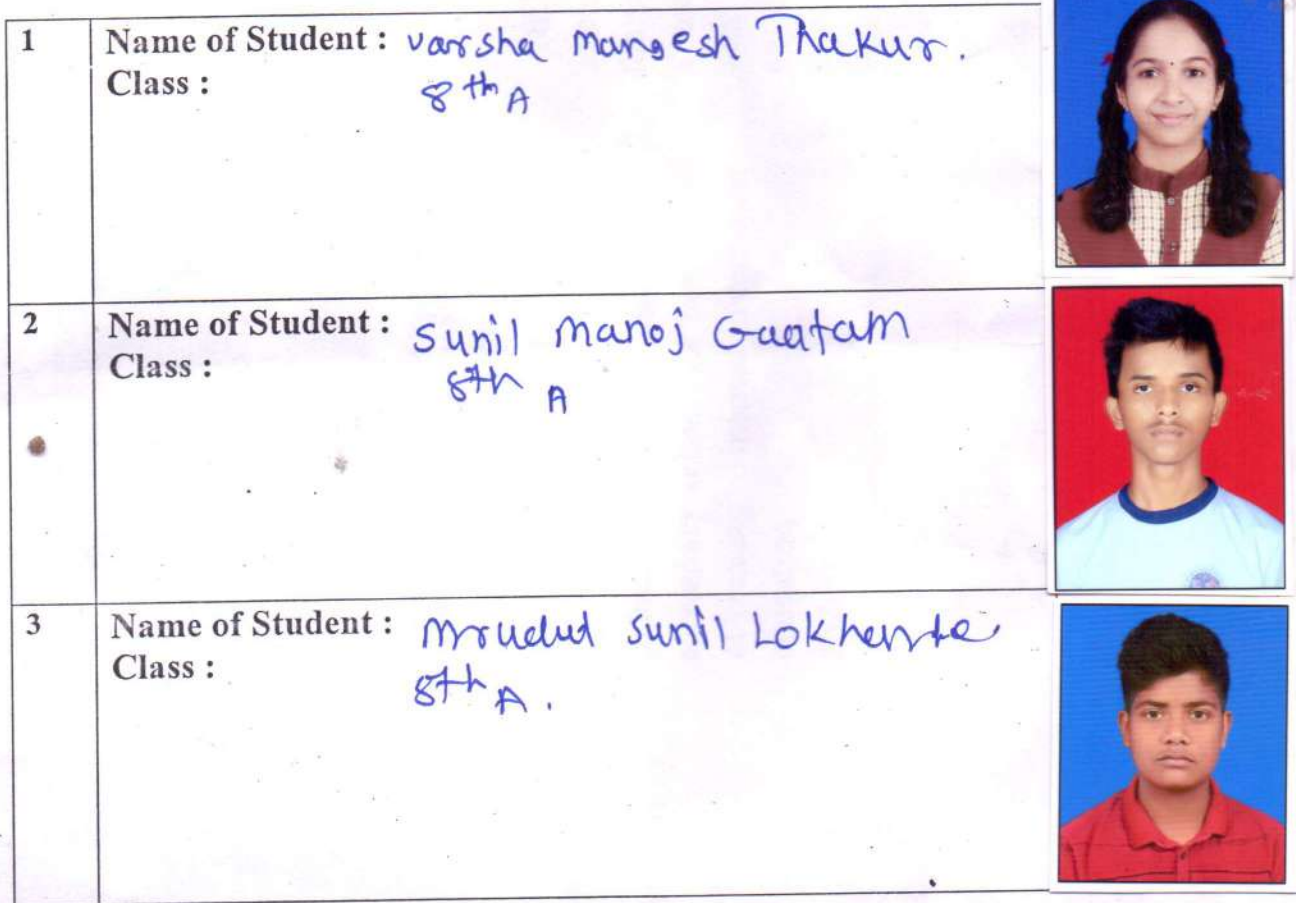 1 Name of Student : Varsha Mangesh Thakur.
Class : 8th A
2 Name of Student : Sunil Manoj Gaatam
Class : 8th A
3 Name of Student : Mrudul Sunil Lokhande
Class : 8th A.